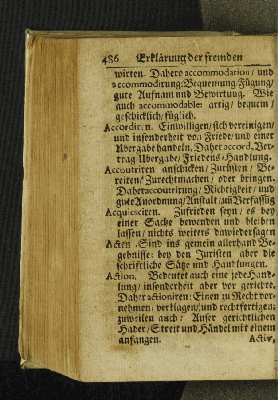 486 Erklärung der fremden
wircken. Dahero accommodation / und
accommodirung: Bequemung / Fügung /
gute Aufnam und Bewirtung. Wie
auch accommodable: artig / bequem /
geschicklich / füglich.
Accordiren. Einwilligen / sich vereinigen /
und insonderheit von Friede und einer
Ubergabe handeln. Daher accord, Ver-
trag Ubergabe / Friedens-Handlung.
Accoutriren anschicken / Zurüsten / Be-
reiten / Zurechtmachen / oder bringen.
Daher accoutrirung / Richtigkeit / und
gute Anordnung / Anstalt / und Verfassung
Acquiesciren. Zufrieden seyn / es bey
einer Sache bewenden und bleiben
lassen / nichts weiters dawieder sagen
Acten. Sind ins gemein allerhand Be-
gebnisse: bey den Juristen aber die
schriftliche Sätze und Handlungen.
Action. Bedeutet auch eine jede Hand-
lung / insonderheit aber vor gerichte.
Daher actioniren: Einen zu Recht vor-
nehmen / verklagen / und rechtfertigen:
zuweilen auch: Ausser gerichtlichen
Hader / Streit und Händel mit einem
anfangen. Activ,